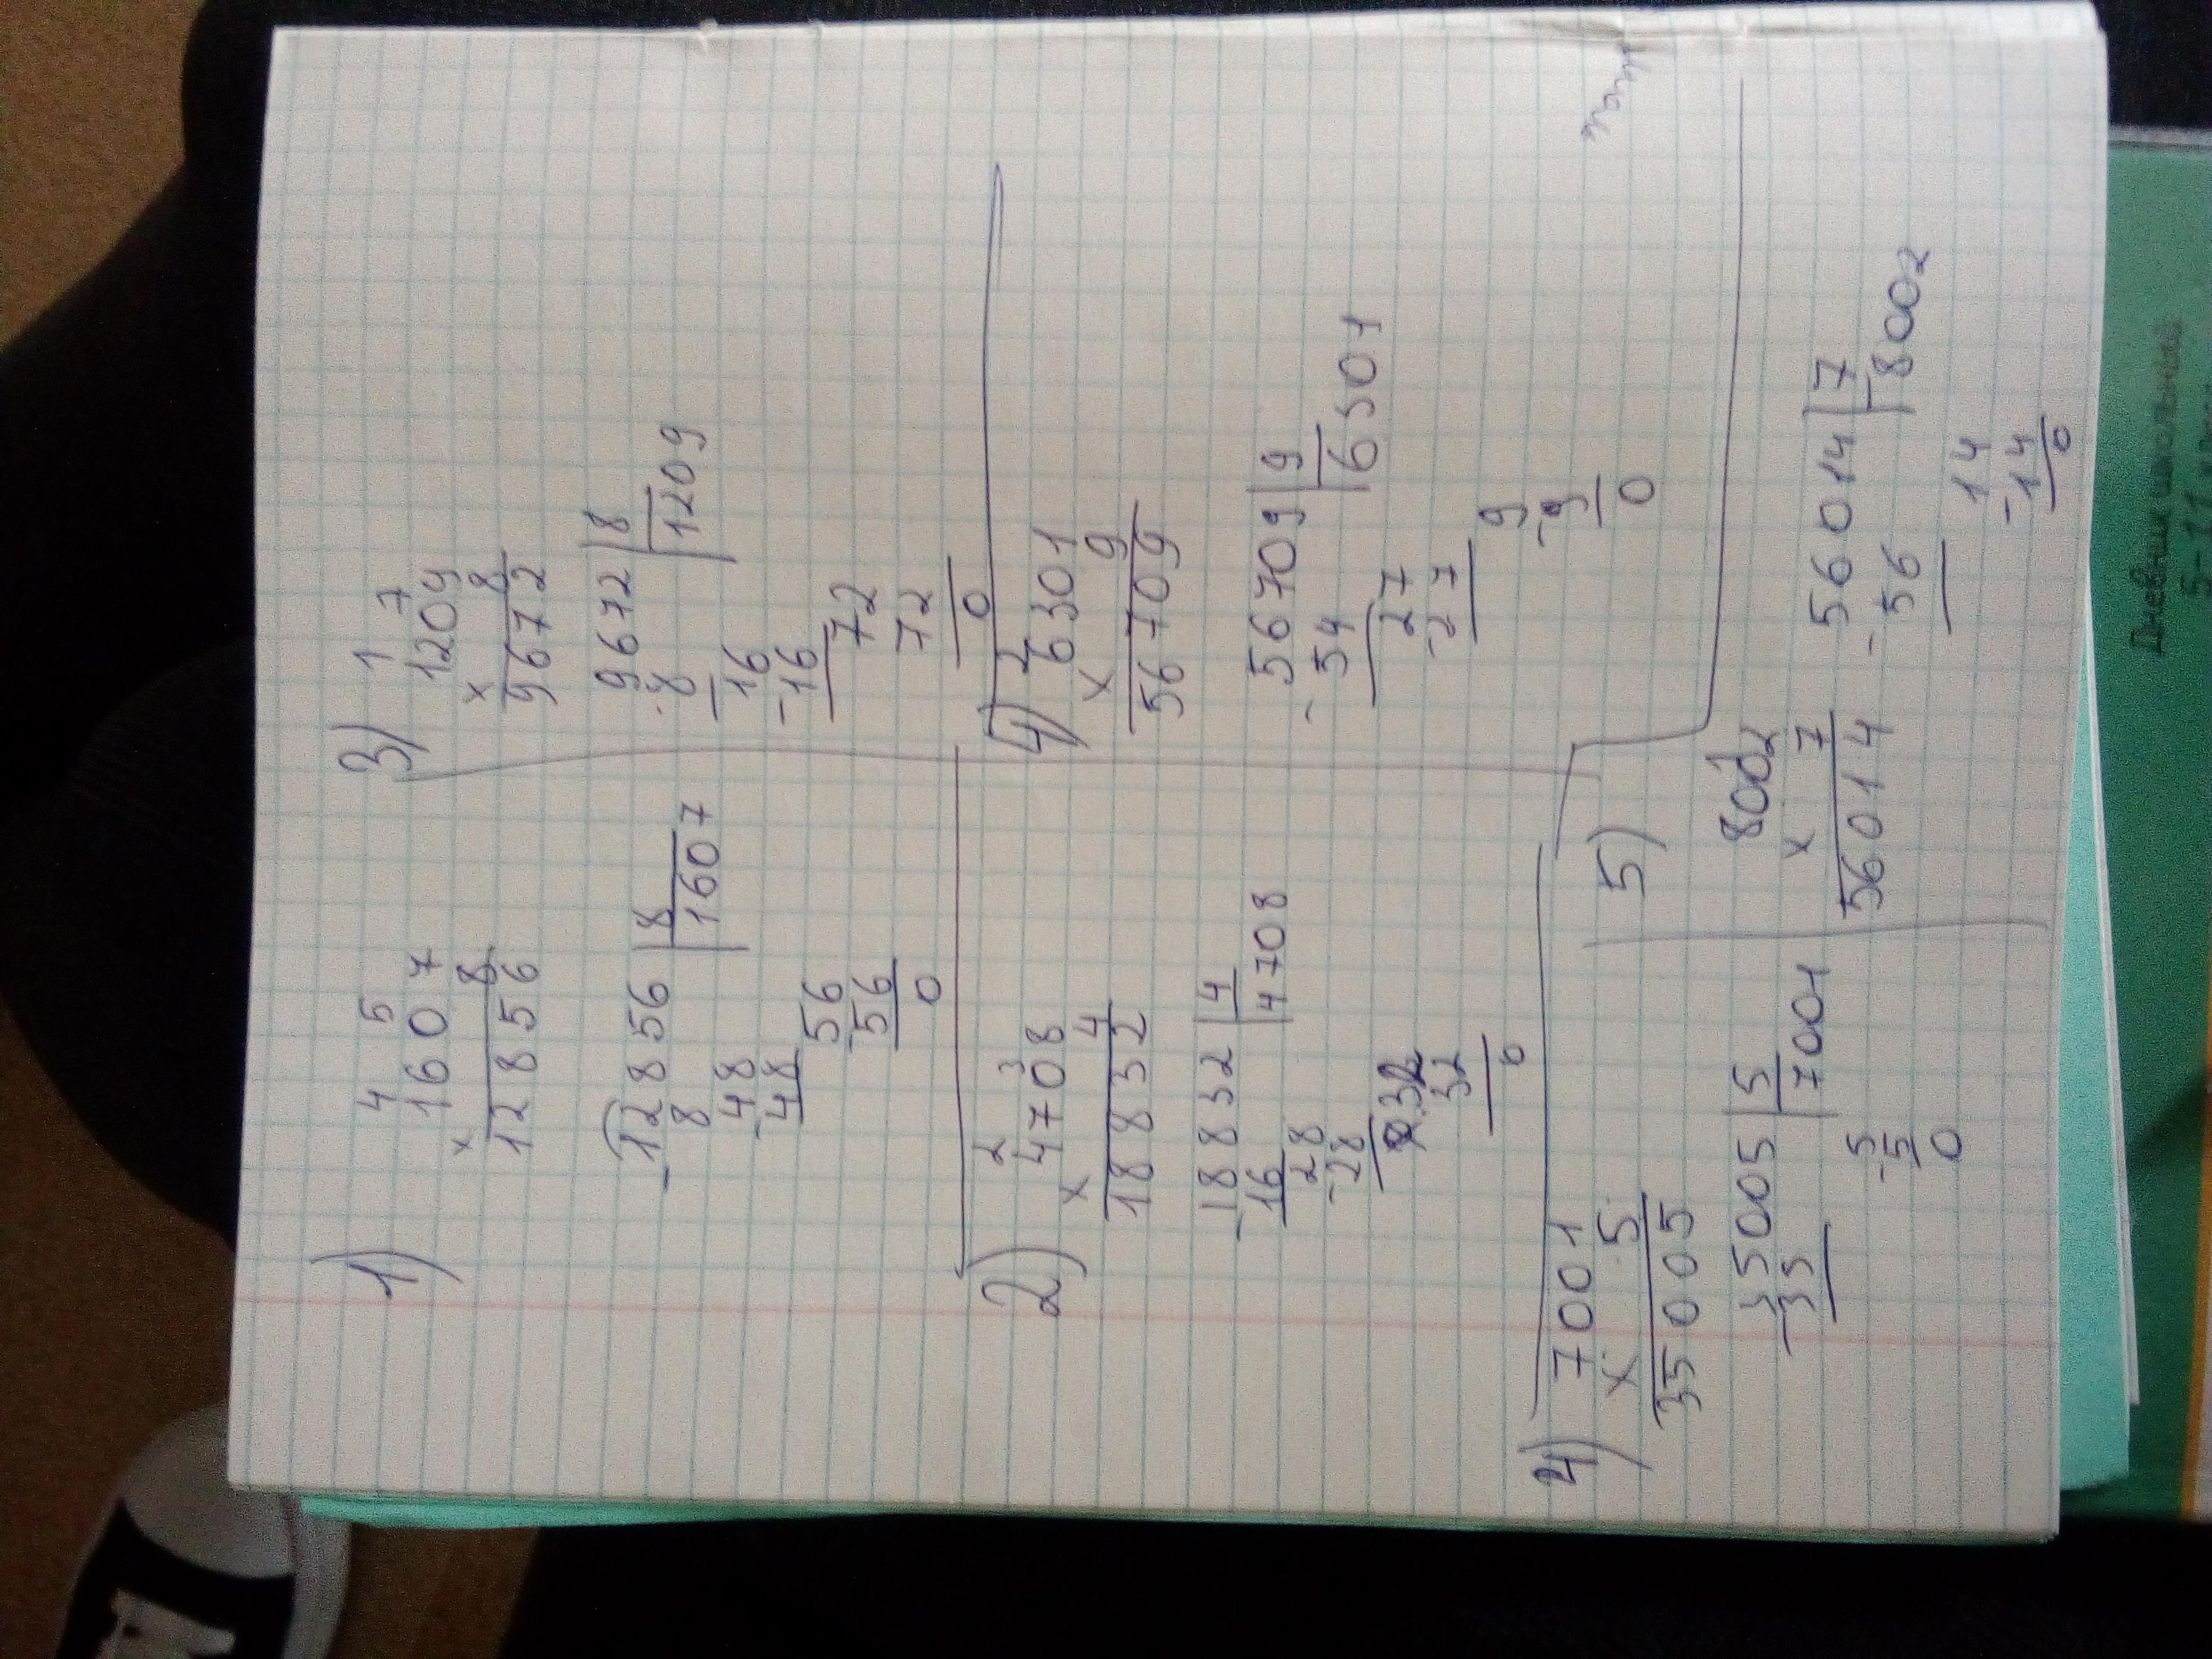 1)
4 5
1607
× 8
12856
12856 | 8
8 1607
48
-48
56
-56
0
2)
2 3
4708
× 4
18832
-18832 | 4
16 4708
28
-28
32
32
0
3)
1 7
1209
× 8
9672
9672 | 8
-8 1209
16
-16
72
72
0
4)
2
6301
× 9
56709
56709 | 9
-54 6301
27
-27
9
-9
0
4)
7001
× 5
35005
35005 | 5
-35 7001
5
-5
0
5)
1
8002
× 7
56014
56014 | 7
-56 8002
14
-14
0
Дневник школьный
5-11